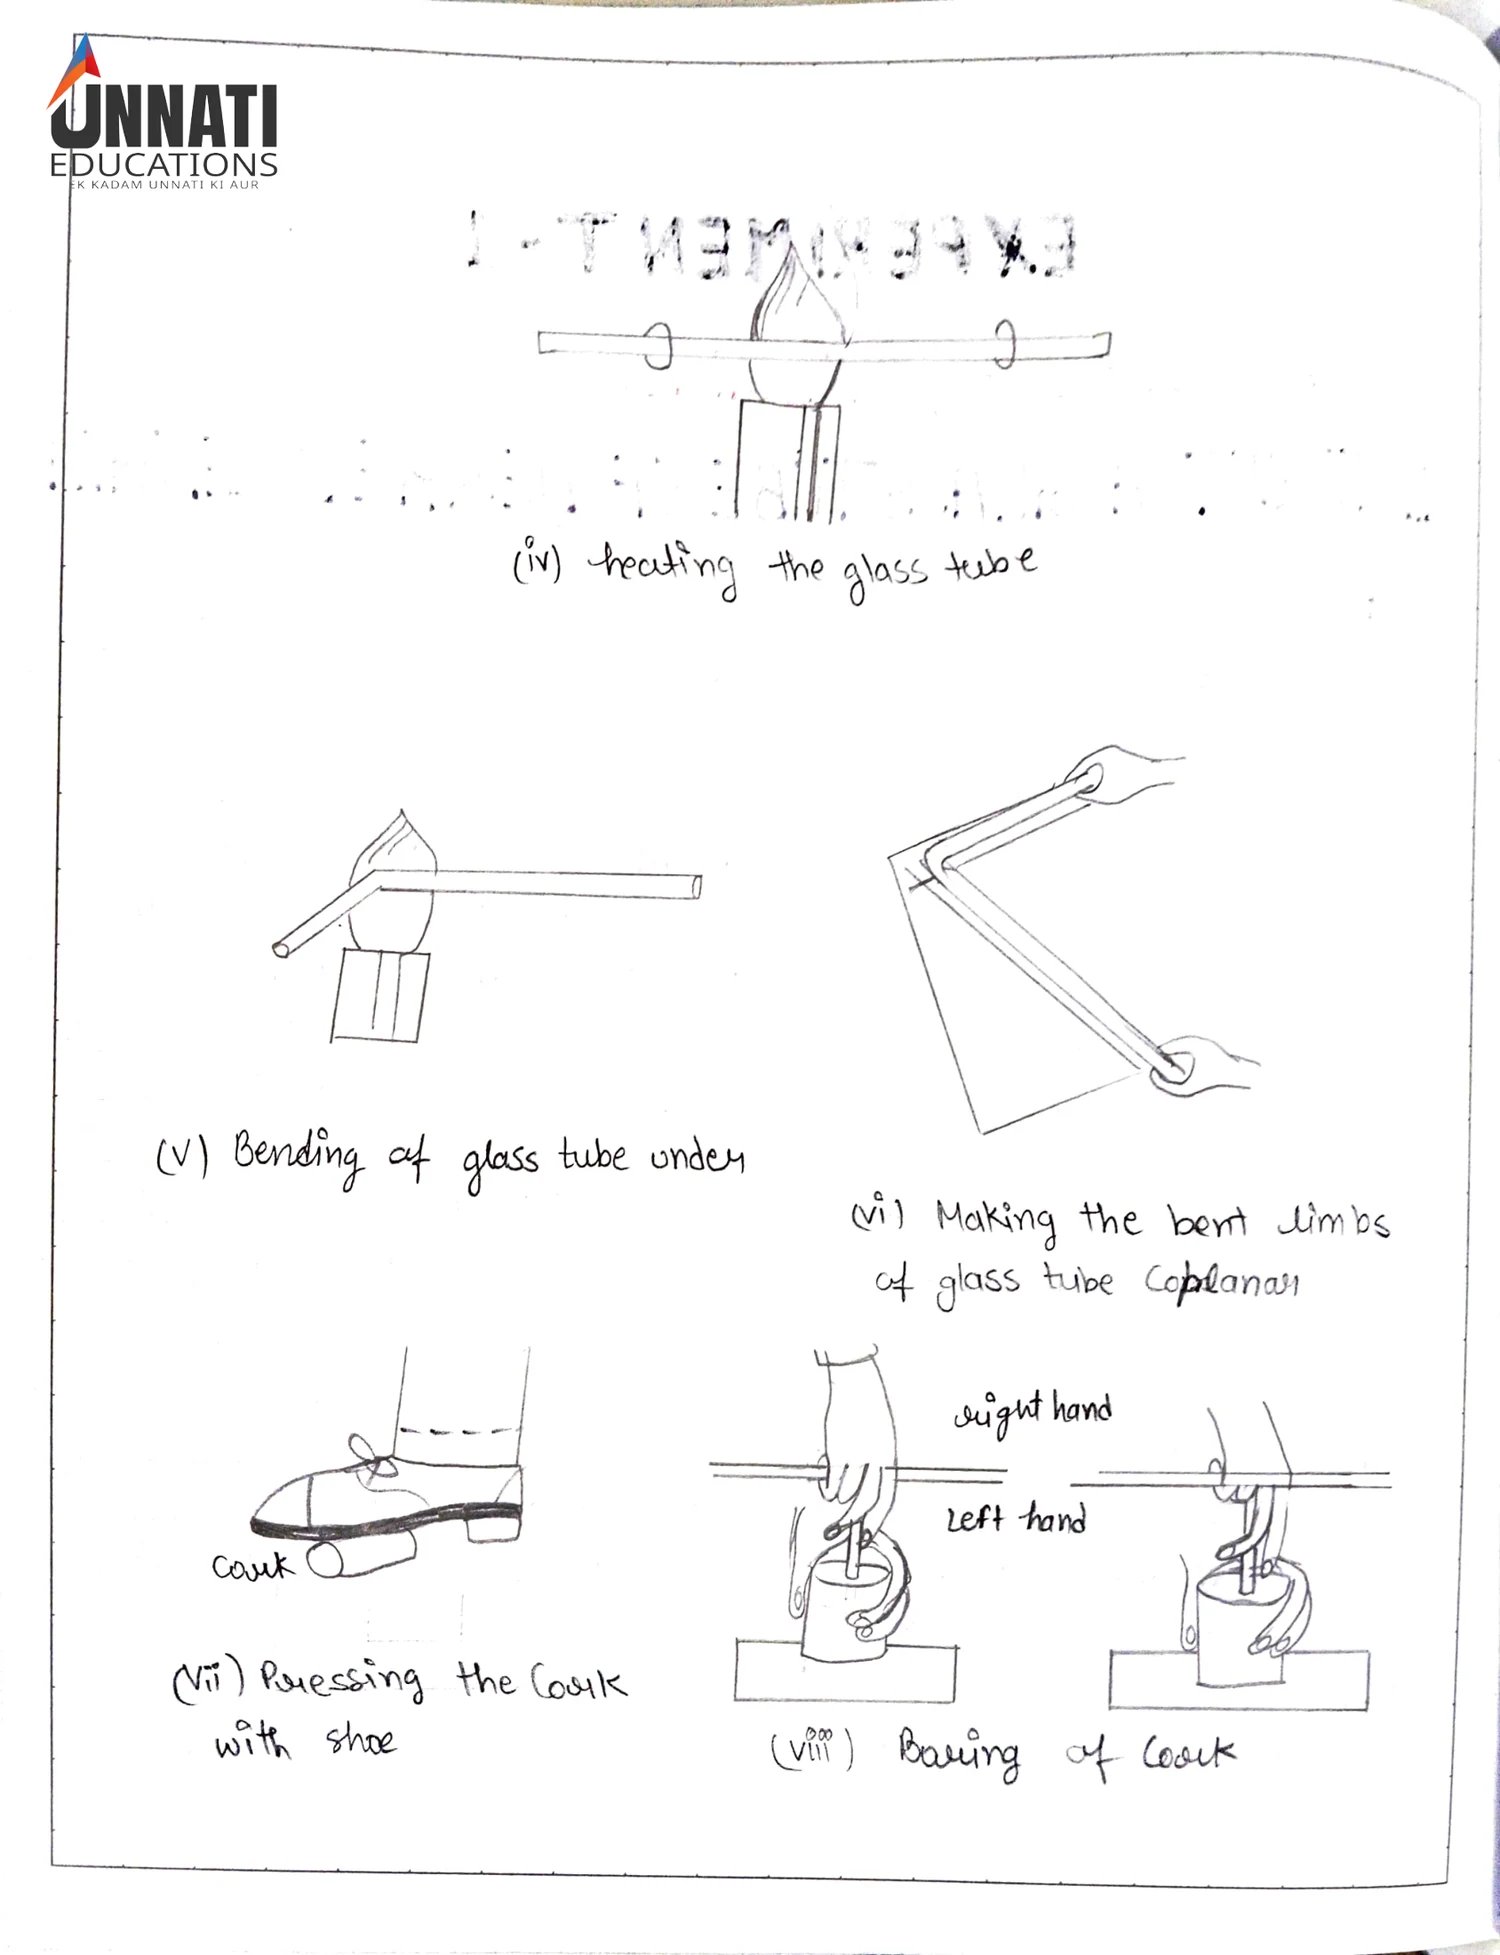 UNNATI
EDUCATIONS
EK KADAM UNNATI KI AUR
EXPERIMENT-1
(iv) heating the glass tube
(v) Bending of glass tube under
(vi) Making the bent limbs
of glass tube Coplanar
right hand
Left hand
Cork
(vii) Pressing the Cork
with shoe
(viii) Boring of Cork